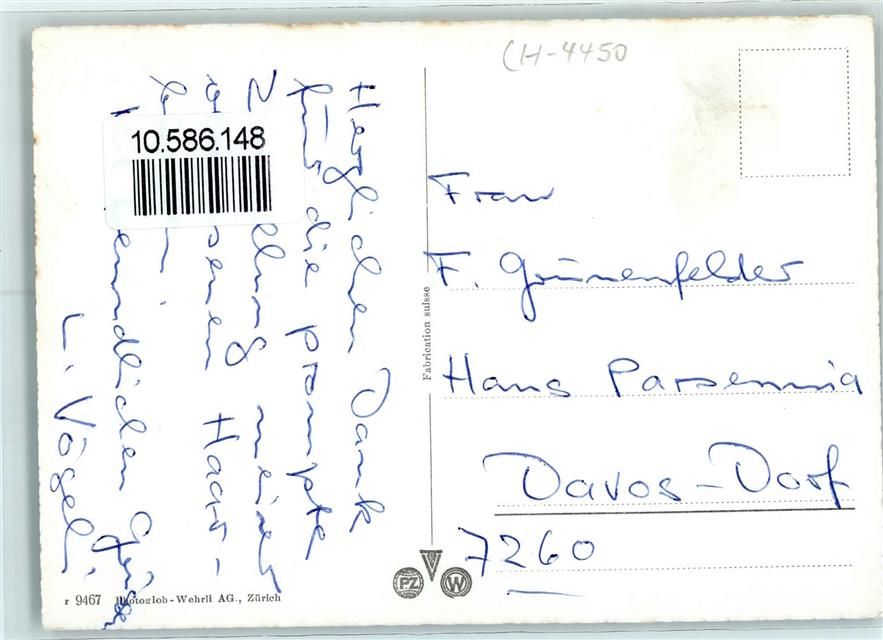 CH-4450
Herzlichen Dank
für die prompte
Z ellung meiner
senen Haar-
freundlichen Grüssen
L. Vögeli
10.586.148
Fabrication suisse
Frau
F. Grünenfelder
Haus Parsennia
Davos-Dorf
7260
PZ
W
r 9467 Photoglob-Wehrli AG., Zürich